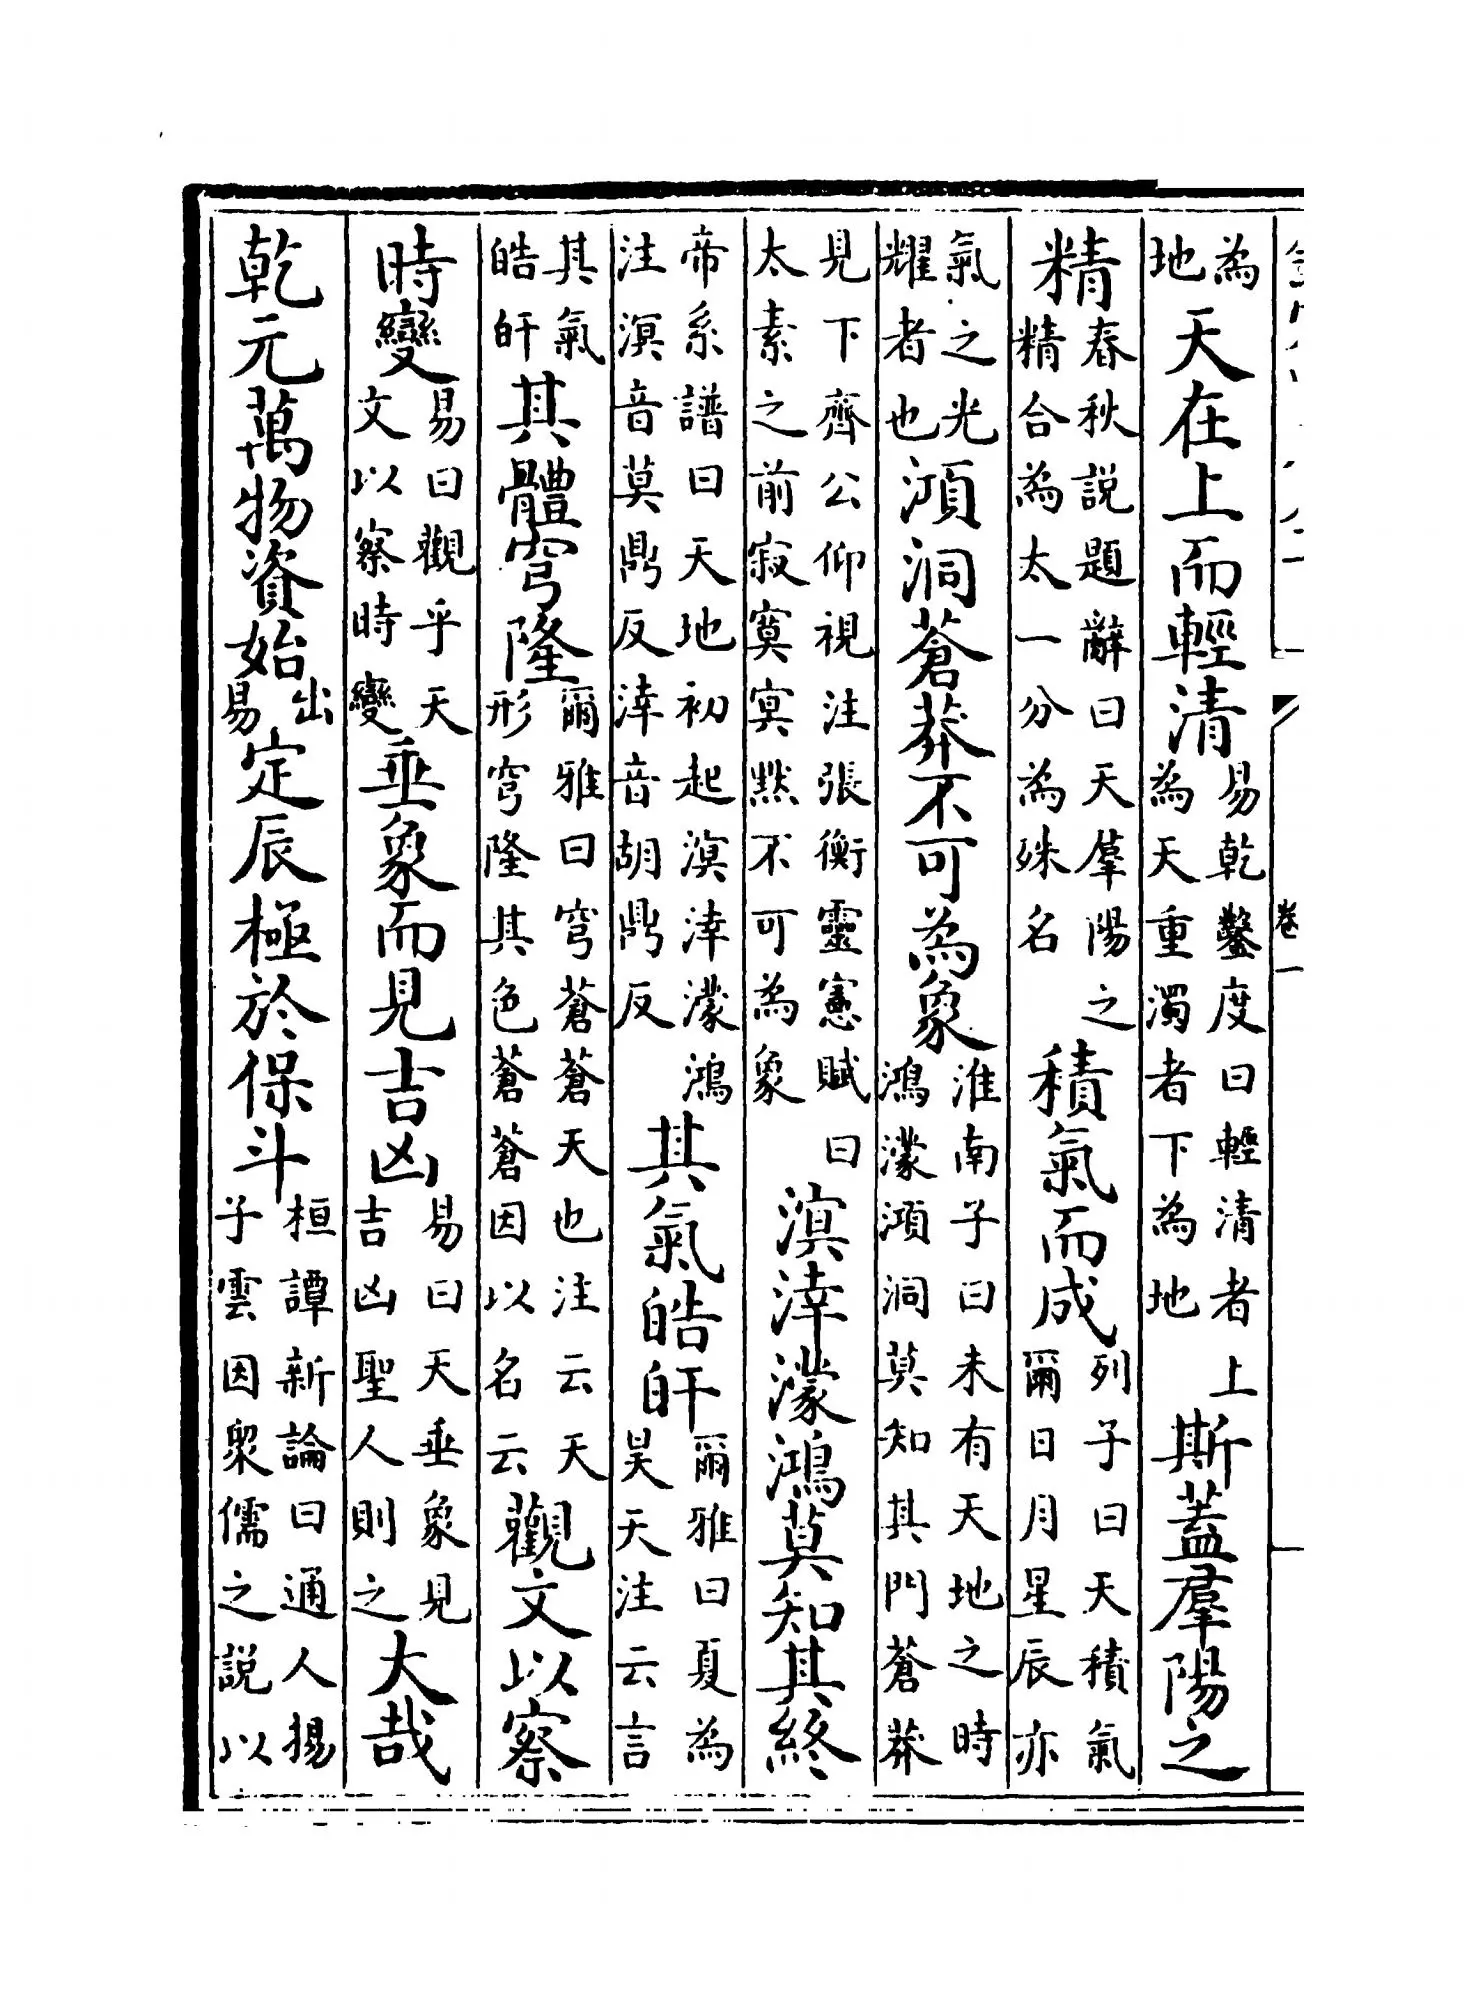 為地天在上而輕清易乾鑿度曰輕清者上為天重濁者下為地斯蓋羣陽之
精春秋説題辭曰天羣陽之精合為太一分為殊名積氣而成列子曰天積氣爾日月星辰亦
氣之光耀者也澒洞蒼莽不可為象淮南子曰未有天地之時鴻濛澒洞莫知其門蒼莽
見下齊公仰視注張衡靈憲賦曰太素之前寂寞冥黙不可為象溟涬濛鴻莫知其終
帝系譜曰天地初起溟涬濛鴻注溟音莫鼎反涬音胡鼎反其氣皓皯爾雅曰夏為昊天注云言
其氣皓皯其體穹隆爾雅曰穹蒼蒼天也注云天形穹隆其色蒼蒼因以名云觀文以察
時變易曰觀乎天文以察時變垂象而見吉凶易曰天垂象見吉凶聖人則之大哉
乾元萬物資始出易定辰極於保斗桓譚新論曰通人揚子雲因衆儒之説以
卷一